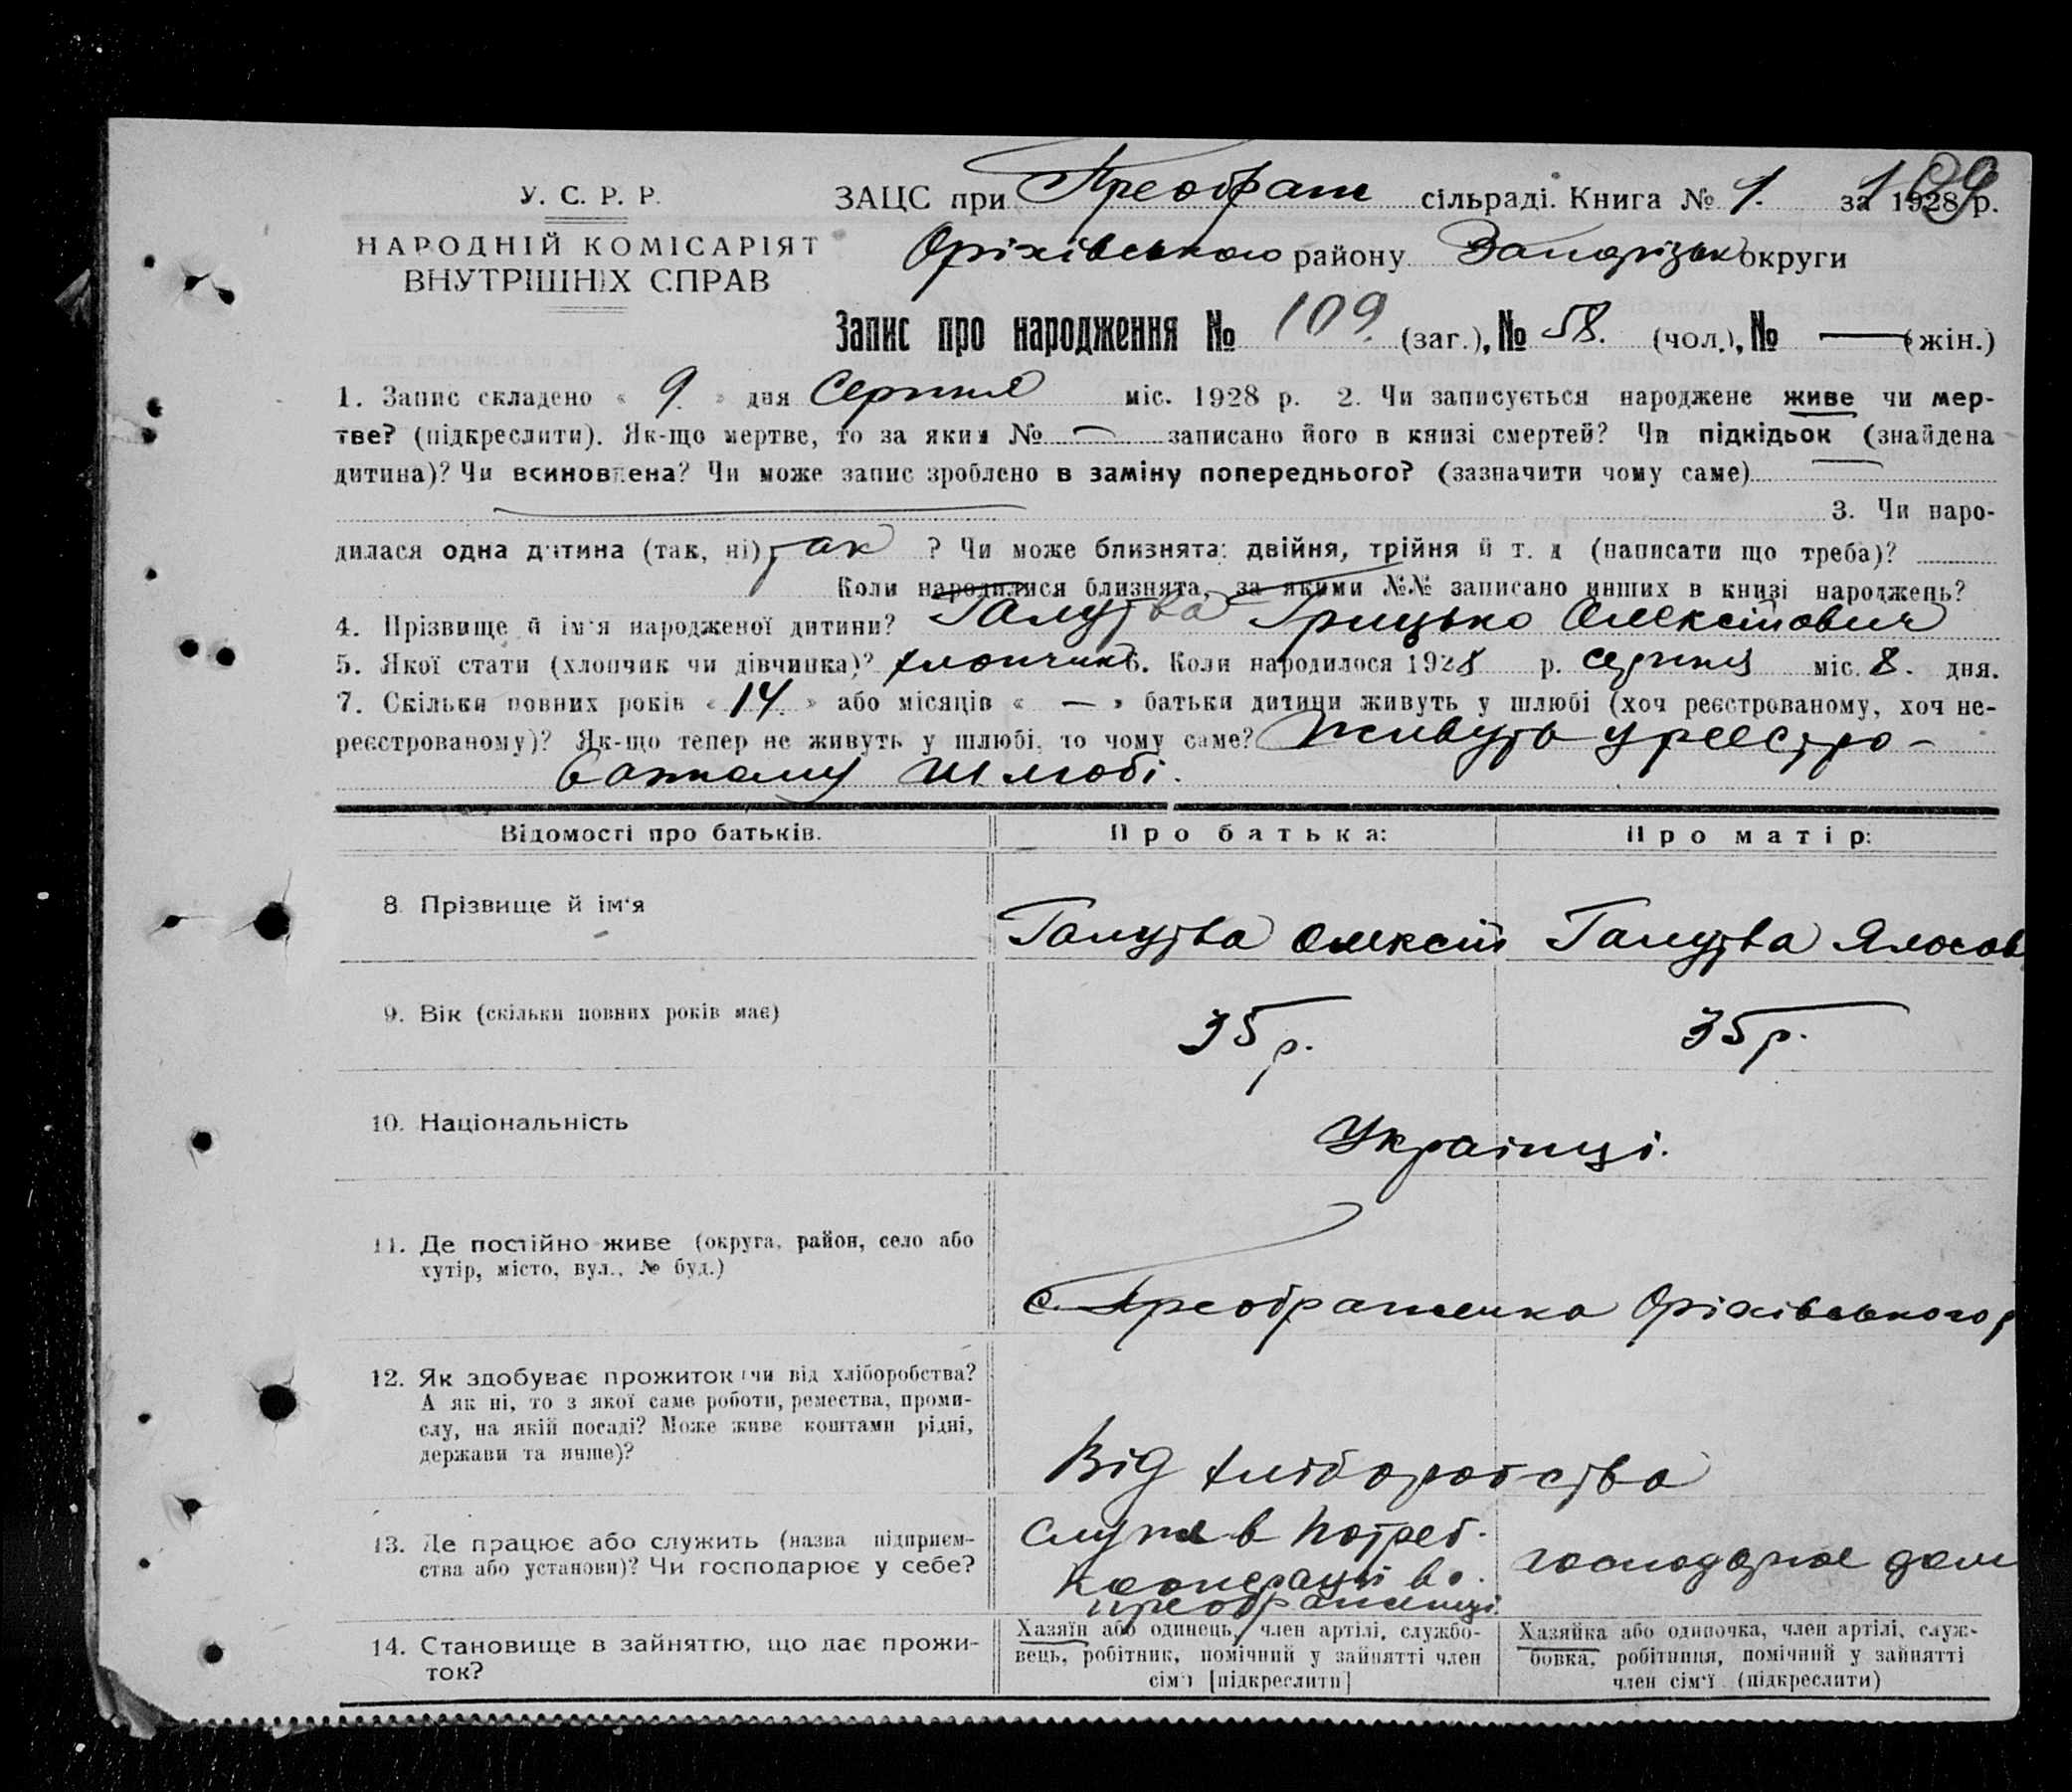 129
У. С. Р. Р. ЗАЦС при Преображ сільраді. Книга № 1. за 1928 р.
НАРОДНІЙ КОМІСАРІЯТ Оріхівського району Запорізьк округи
ВНУТРІШНІХ СПРАВ
Запис про народження № 109. (заг.), № 58. (чол.), № — (жін.)
1. Запис складено « 9. » дня Серпня міс. 1928 р. 2. Чи записується народжене живе чи мер-
тве? (підкреслити). Як-що мертве, то за яким № — записано його в книзі смертей? Чи підкідьок (знайдена
дитина)? Чи всиновлена? Чи може запис зроблено в заміну попереднього? (зазначити чому саме) —
3. Чи наро-
дилася одна дитина (так, ні) так ? Чи може близнята: двійня, трійня й т. д (написати що треба)?
Коли народилися близнята, за якими №№ записано инших в книзі народжень?
4. Прізвище й ім'я народженої дитини? Галушва Грицько Олексійович
5. Якої стати (хлопчик чи дівчинка)? хлопчик 6. Коли народилося 1928 р. серпня міс. 8. дня.
7. Скільки повних років « 14. » або місяців « — » батьки дитини живуть у шлюбі (хоч реєстрованому, хоч не-
реєстрованому)? Як-що тепер не живуть у шлюбі, то чому саме? Живуть у реєстро-
ванному шлюбі.
Відомості про батьків. Про батька: Про матір:
8. Прізвище й ім'я Олексій
9. Вік (скільки повних років має) 35 р. 35 р.
10. Національність Українці.
11. Де постійно живе (округа, район, село або
хутір, місто, вул., № буд.)
с. Преображенка Оріхівського р
12. Як здобуває прожиток (чи від хліборобства?
А як ні, то з якої саме роботи, ремества, проми-
слу, на якій посаді? Може живе коштами рідні,
держави та инше)?
Від хліборобства
13. Де працює або служить (назва підприєм-
ства або установи)? Чи господарює у себе?
служе в потреб.
кооперації в с.
преображенці
господарює дом
14. Становище в зайняттю, що дає прожи-
ток?
Хазяїн або одинець, член артілі, службо-
вець, робітник, помічний у зайнятті член
сім'ї [підкреслити]
Хазяйка або одиночка, член артілі, служ-
бовка, робітниця, помічний у зайнятті
член сім'ї (підкреслити)